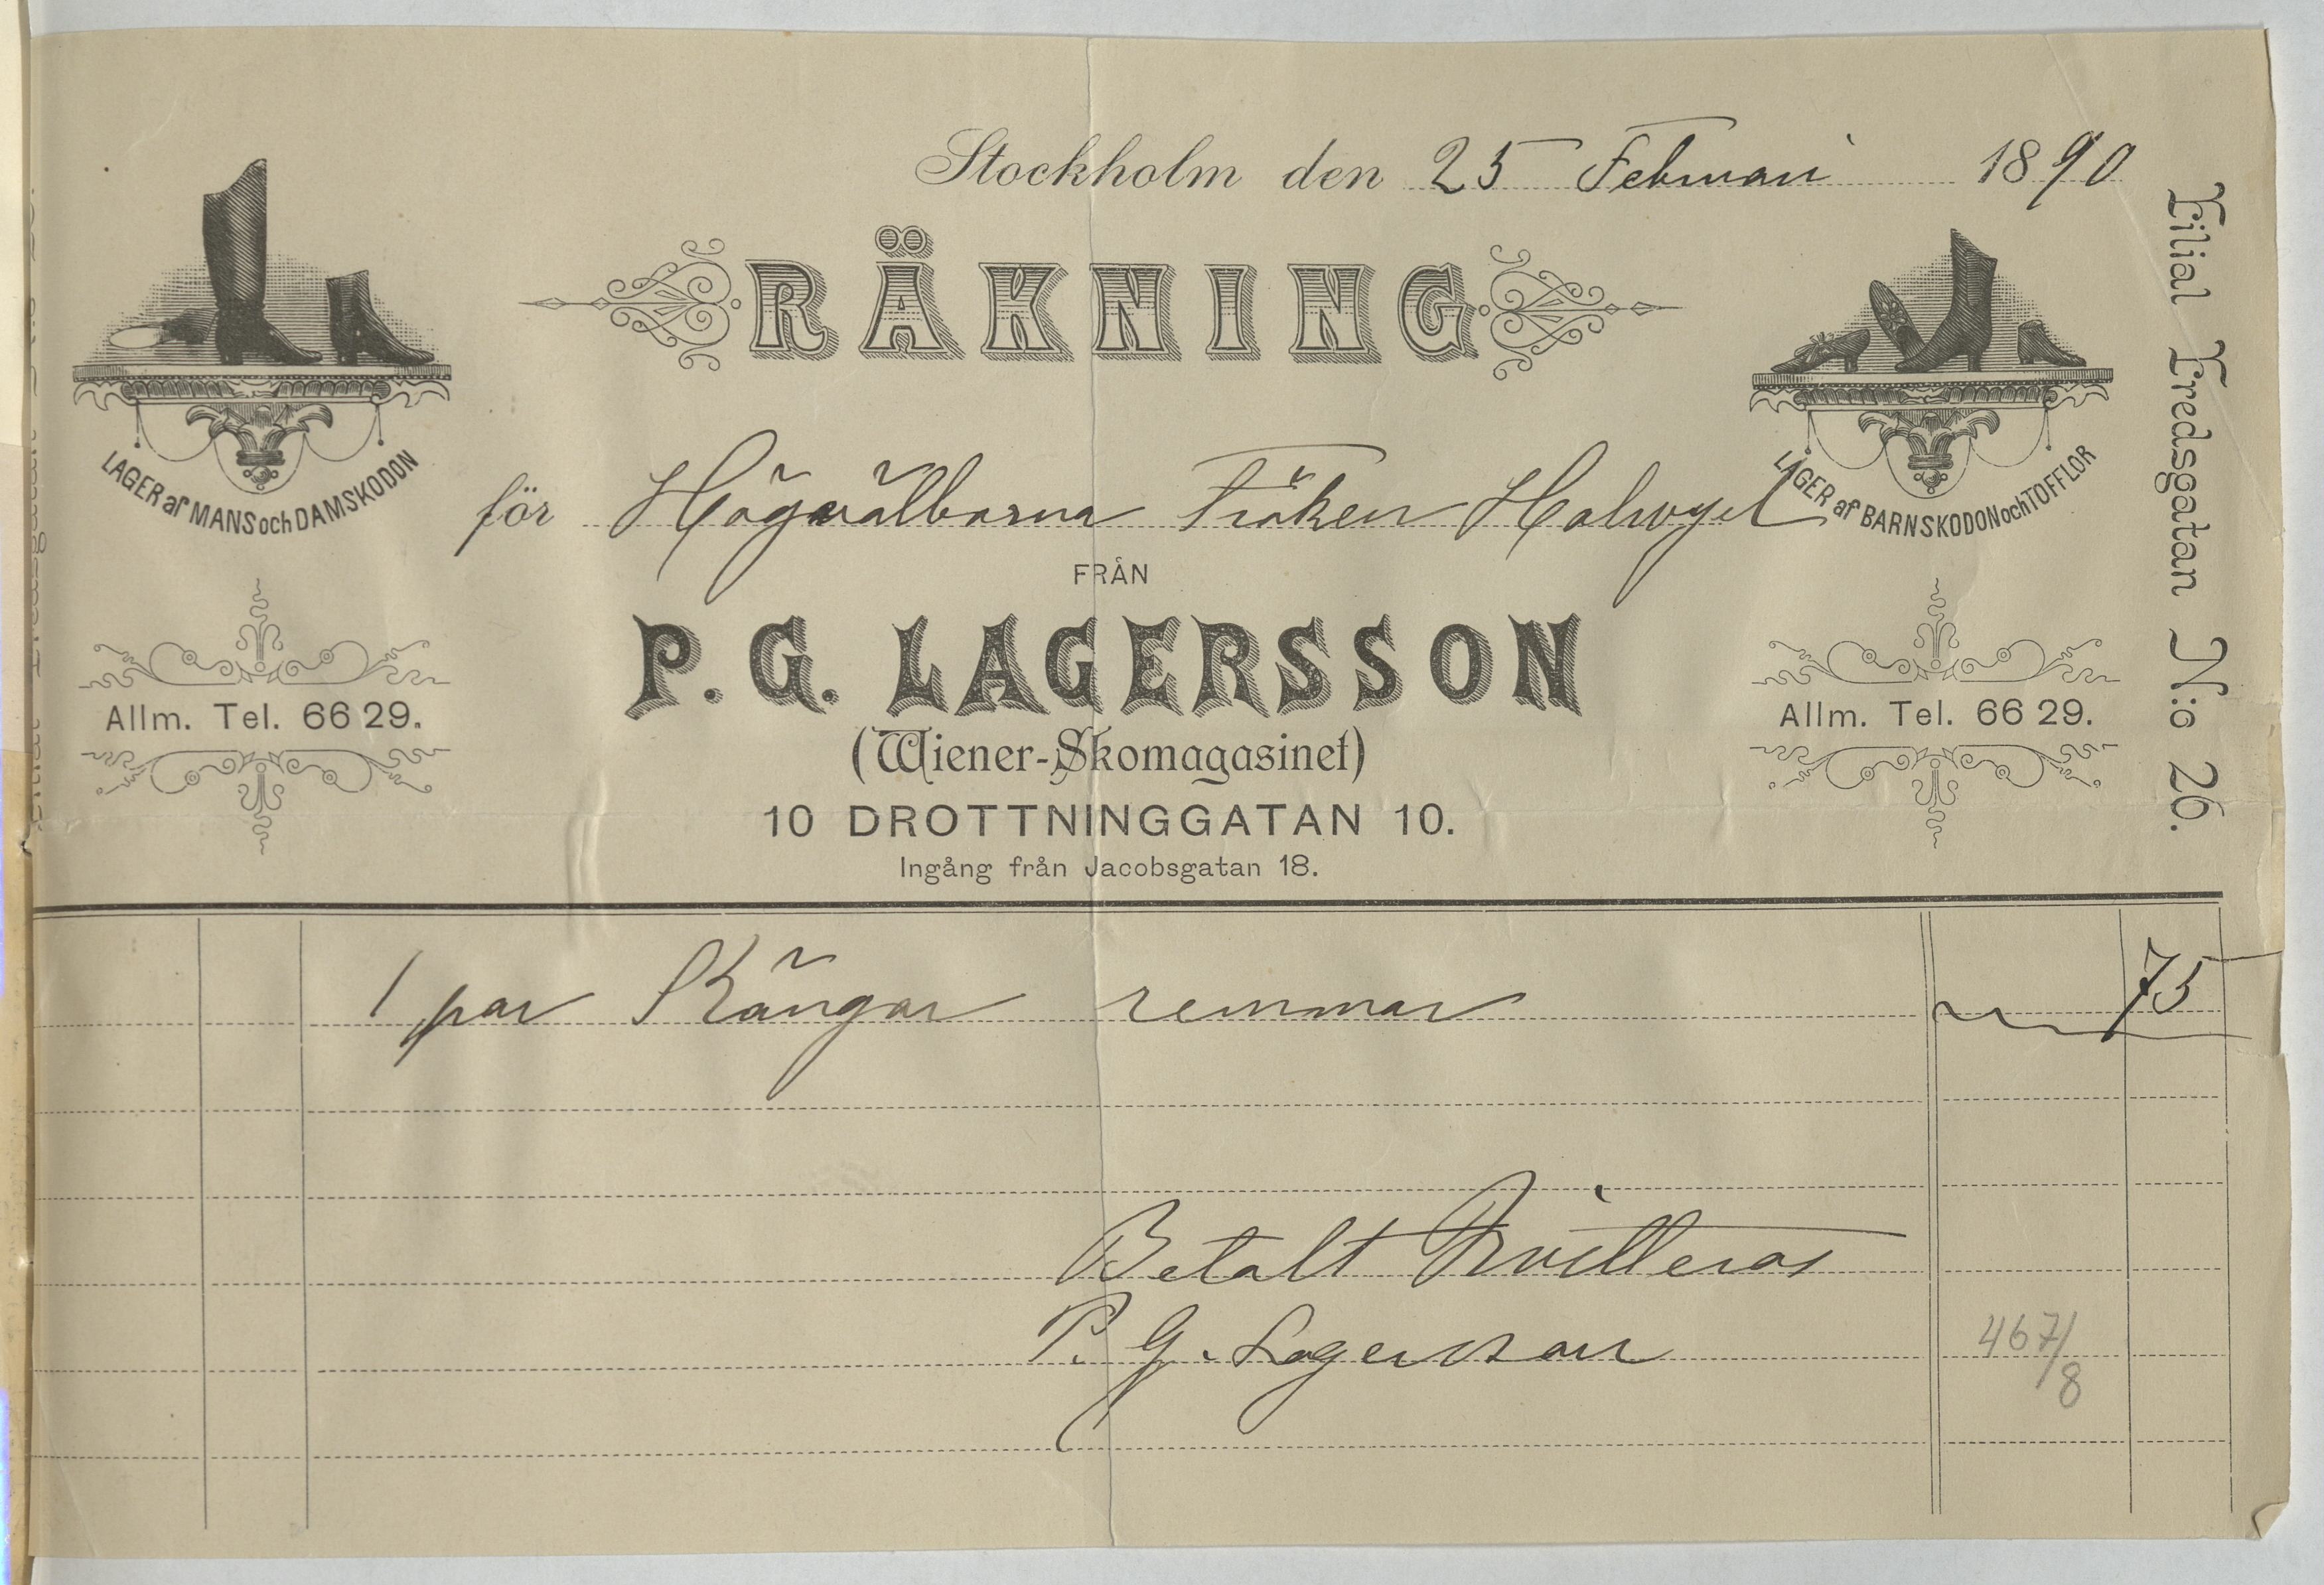 Stockholm den 25 Februari 1890
RÄKNING
för Högvälborna Fröken Halwyel
FRÅN
P. G. LAGERSSON
(Wiener-Skomagasinet)
10 DROTTNINGGATAN 10.
Ingång från Jacobsgatan 18.
LAGER af MANS och DAMSKODON
Allm. Tel. 66 29.
LAGER af BARNSKODON och TOFFLOR
Allm. Tel. 66 29.
Filial Fredsgatan N:o 26.
1 par Kängar remmar 75
Betalt Qvitteras
P. G. Lagersson
467/8